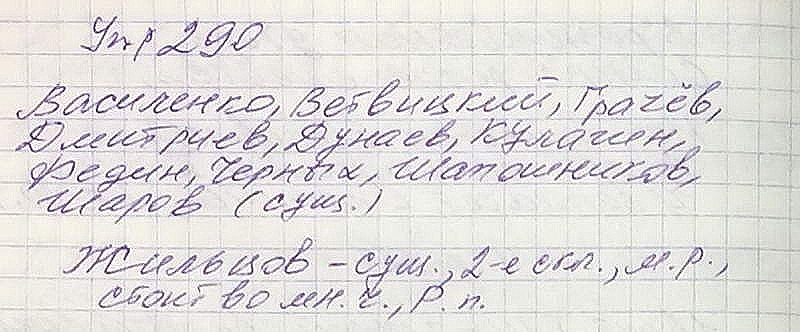 Упр 290
Василенко, Ветвицкий, Грачёв,
Дмитриев, Дунаев, Кулагин,
Федин, Черных, Шапошников,
Шаров (сущ.)
Жильцов – сущ., 2-е скл., м.р.,
стоит во мн. ч., Р. п.